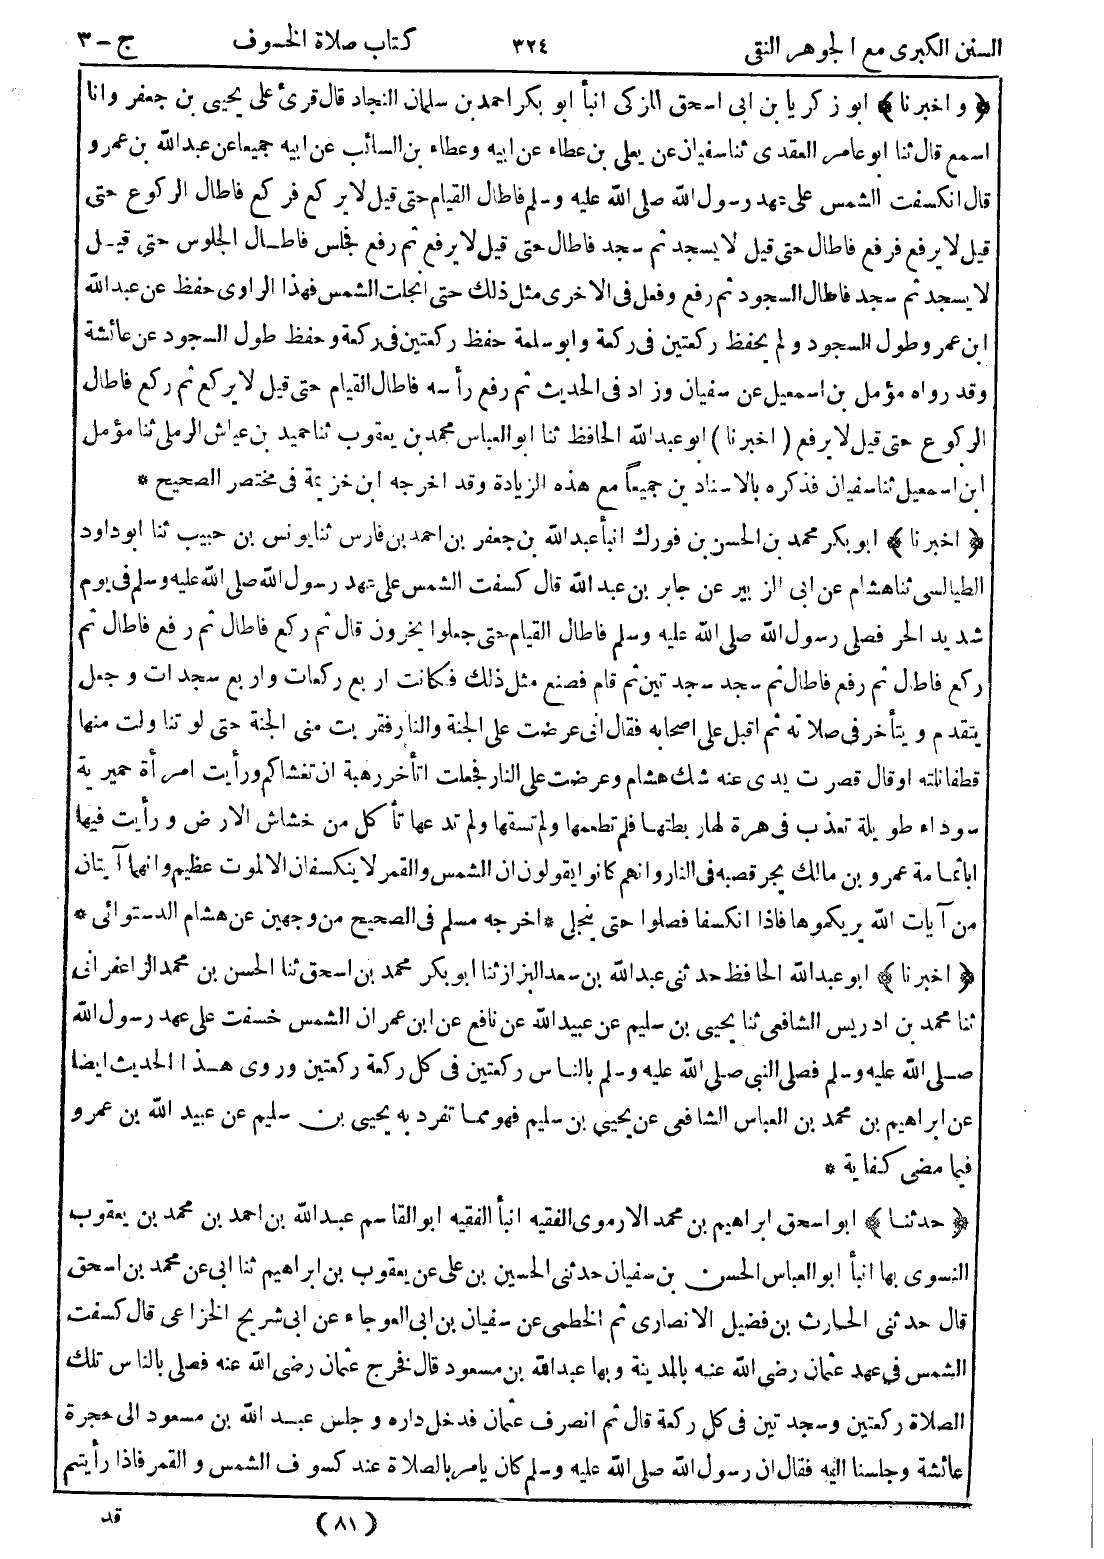 السنن الكبرى مع الجوهر النقى ٣٢٤ كتاب صلاة الخسوف ج-٣
﴿ و اخبرنا ﴾ ابو زكريا بن ابى اسحق المزكى انبأ ابو بكر احمد بن سلمان النجاد قال قرئ على يحيى بن جعفر وانا
اسمع قال ثنا ابو عامر العقدى ثنا سفيان عن يعلى بن عطاء عن ابيه وعطاء بن السائب عن ابيه جميعا عن عبد الله بن عمرو
قال انكسفت الشمس على عهد رسول الله صلى الله عليه وسلم فاطال القيام حتى قيل لا يركع فركع فاطال الركوع حتى
قيل لا يرفع فرفع فاطال حتى قيل لا يسجد ثم سجد فاطال حتى قيل لا يرفع ثم رفع فجلس فاطال الجلوس حتى قيل
لا يسجد ثم سجد فاطال السجود ثم رفع وفعل فى الاخرى مثل ذلك حتى انجلت الشمس فهذا الراوى حفظ عن عبد الله
ابن عمرو طول السجود ولم يحفظ ركعتين فى ركعة وابو سلمة حفظ ركعتين فى ركعة وحفظ طول السجود عن عائشة
وقد رواه مؤمل بن اسمعيل عن سفيان وزاد فى الحديث ثم رفع رأسه فاطال القيام حتى قيل لا يركع ثم ركع فاطال
الركوع حتى قيل لا يرفع ( اخبرنا ) ابو عبد الله الحافظ ثنا ابو العباس محمد بن يعقوب ثنا حميد بن عياش الرملى ثنا مؤمل
ابن اسمعيل ثنا سفيان فذكره بالاسنادين جميعاً مع هذه الزيادة وقد اخرجه ابن خزيمة فى مختصر الصحيح *
﴿ اخبرنا ﴾ ابو بكر محمد بن الحسن بن فورك انبأ عبد الله بن جعفر بن احمد بن فارس ثنا يونس بن حبيب ثنا ابو داود
الطيالسى ثنا هشام عن ابى الزبير عن جابر بن عبد الله قال كسفت الشمس على عهد رسول الله صلى الله عليه وسلم فى يوم
شديد الحر فصلى رسول الله صلى الله عليه وسلم فاطال القيام حتى جعلوا يخرون قال ثم ركع فاطال ثم رفع فاطال ثم
ركع فاطال ثم رفع فاطال ثم سجد سجدتين ثم قام فصنع مثل ذلك فكانت اربع ركعات واربع سجدات وجعل
يتقدم ويتأخر فى صلاته ثم اقبل على اصحابه فقال انى عرضت على الجنة والنار فقربت منى الجنة حتى لو تناولت منها
قطفا نلته او قال قصرت يدى عنه شك هشام وعرضت على النار فجعلت اتأخر رهبة ان تغشاكم ورأيت امرأة حميرية
سوداء طويلة تعذب فى هرة لها ربطتها فلم تطعمها ولم تسقها ولم تدعها تأكل من خشاش الارض ورأيت فيها
ابا ثمامة عمرو بن مالك يجر قصبه فى النار وانهم كانوا يقولون ان الشمس والقمر لا ينكسفان الا لموت عظيم وانهما آيتان
من آيات الله يريكموها فاذا انكسفا فصلوا حتى ينجلى * اخرجه مسلم فى الصحيح من وجهين عن هشام الدستوائى *
﴿ اخبرنا ﴾ ابو عبد الله الحافظ حدثنى عبد الله بن سعد البزاز ثنا ابو بكر محمد بن اسحق ثنا الحسن بن محمد الزاعفرانى
ثنا محمد بن ادريس الشافعى ثنا يحيى بن سليم عن عبيد الله عن نافع عن ابن عمر ان الشمس خسفت على عهد رسول الله
صلى الله عليه وسلم فصلى النبى صلى الله عليه وسلم بالناس ركعتين فى كل ركعة ركعتين وروى هذا الحديث ايضا
عن ابراهيم بن محمد بن العباس الشافعى عن يحيى بن سليم فهو مما تفرد به يحيى بن سليم عن عبيد الله بن عمرو
فيما مضى كفاية *
﴿ حدثنا ﴾ ابو اسحق ابراهيم بن محمد الارموى الفقيه انبأ الفقيه ابو القاسم عبد الله بن احمد بن محمد بن يعقوب
النسوى بها انبأ ابو العباس الحسن بن سفيان حدثنى الحسين بن على عن يعقوب بن ابراهيم ثنا ابى عن محمد بن اسحق
قال حدثنى الحارث بن فضيل الانصارى ثم الخطمى عن سفيان بن ابى العوجاء عن ابى شريح الخزاعى قال كسفت
الشمس فى عهد عثمان رضى الله عنه بالمدينة وبها عبد الله بن مسعود قال فخرج عثمان رضى الله عنه فصلى بالناس تلك
الصلاة ركعتين وسجدتين فى كل ركعة قال ثم انصرف عثمان فدخل داره وجلس عبد الله بن مسعود الى حجرة
عائشة وجلسنا اليه فقال ان رسول الله صلى الله عليه وسلم كان يامر بالصلاة عند كسوف الشمس والقمر فاذا رأيتم
(٨١) قد